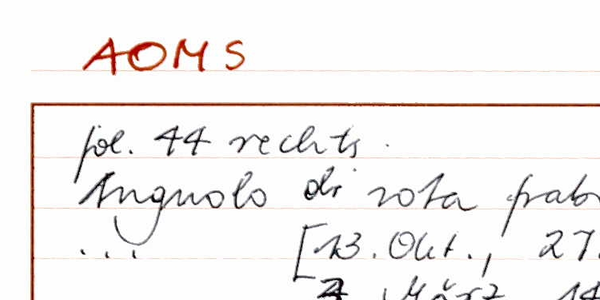 AOMS
fol. 44 rechts.
Angnolo di rota frab
... [13. Okt., 27.
März, 14